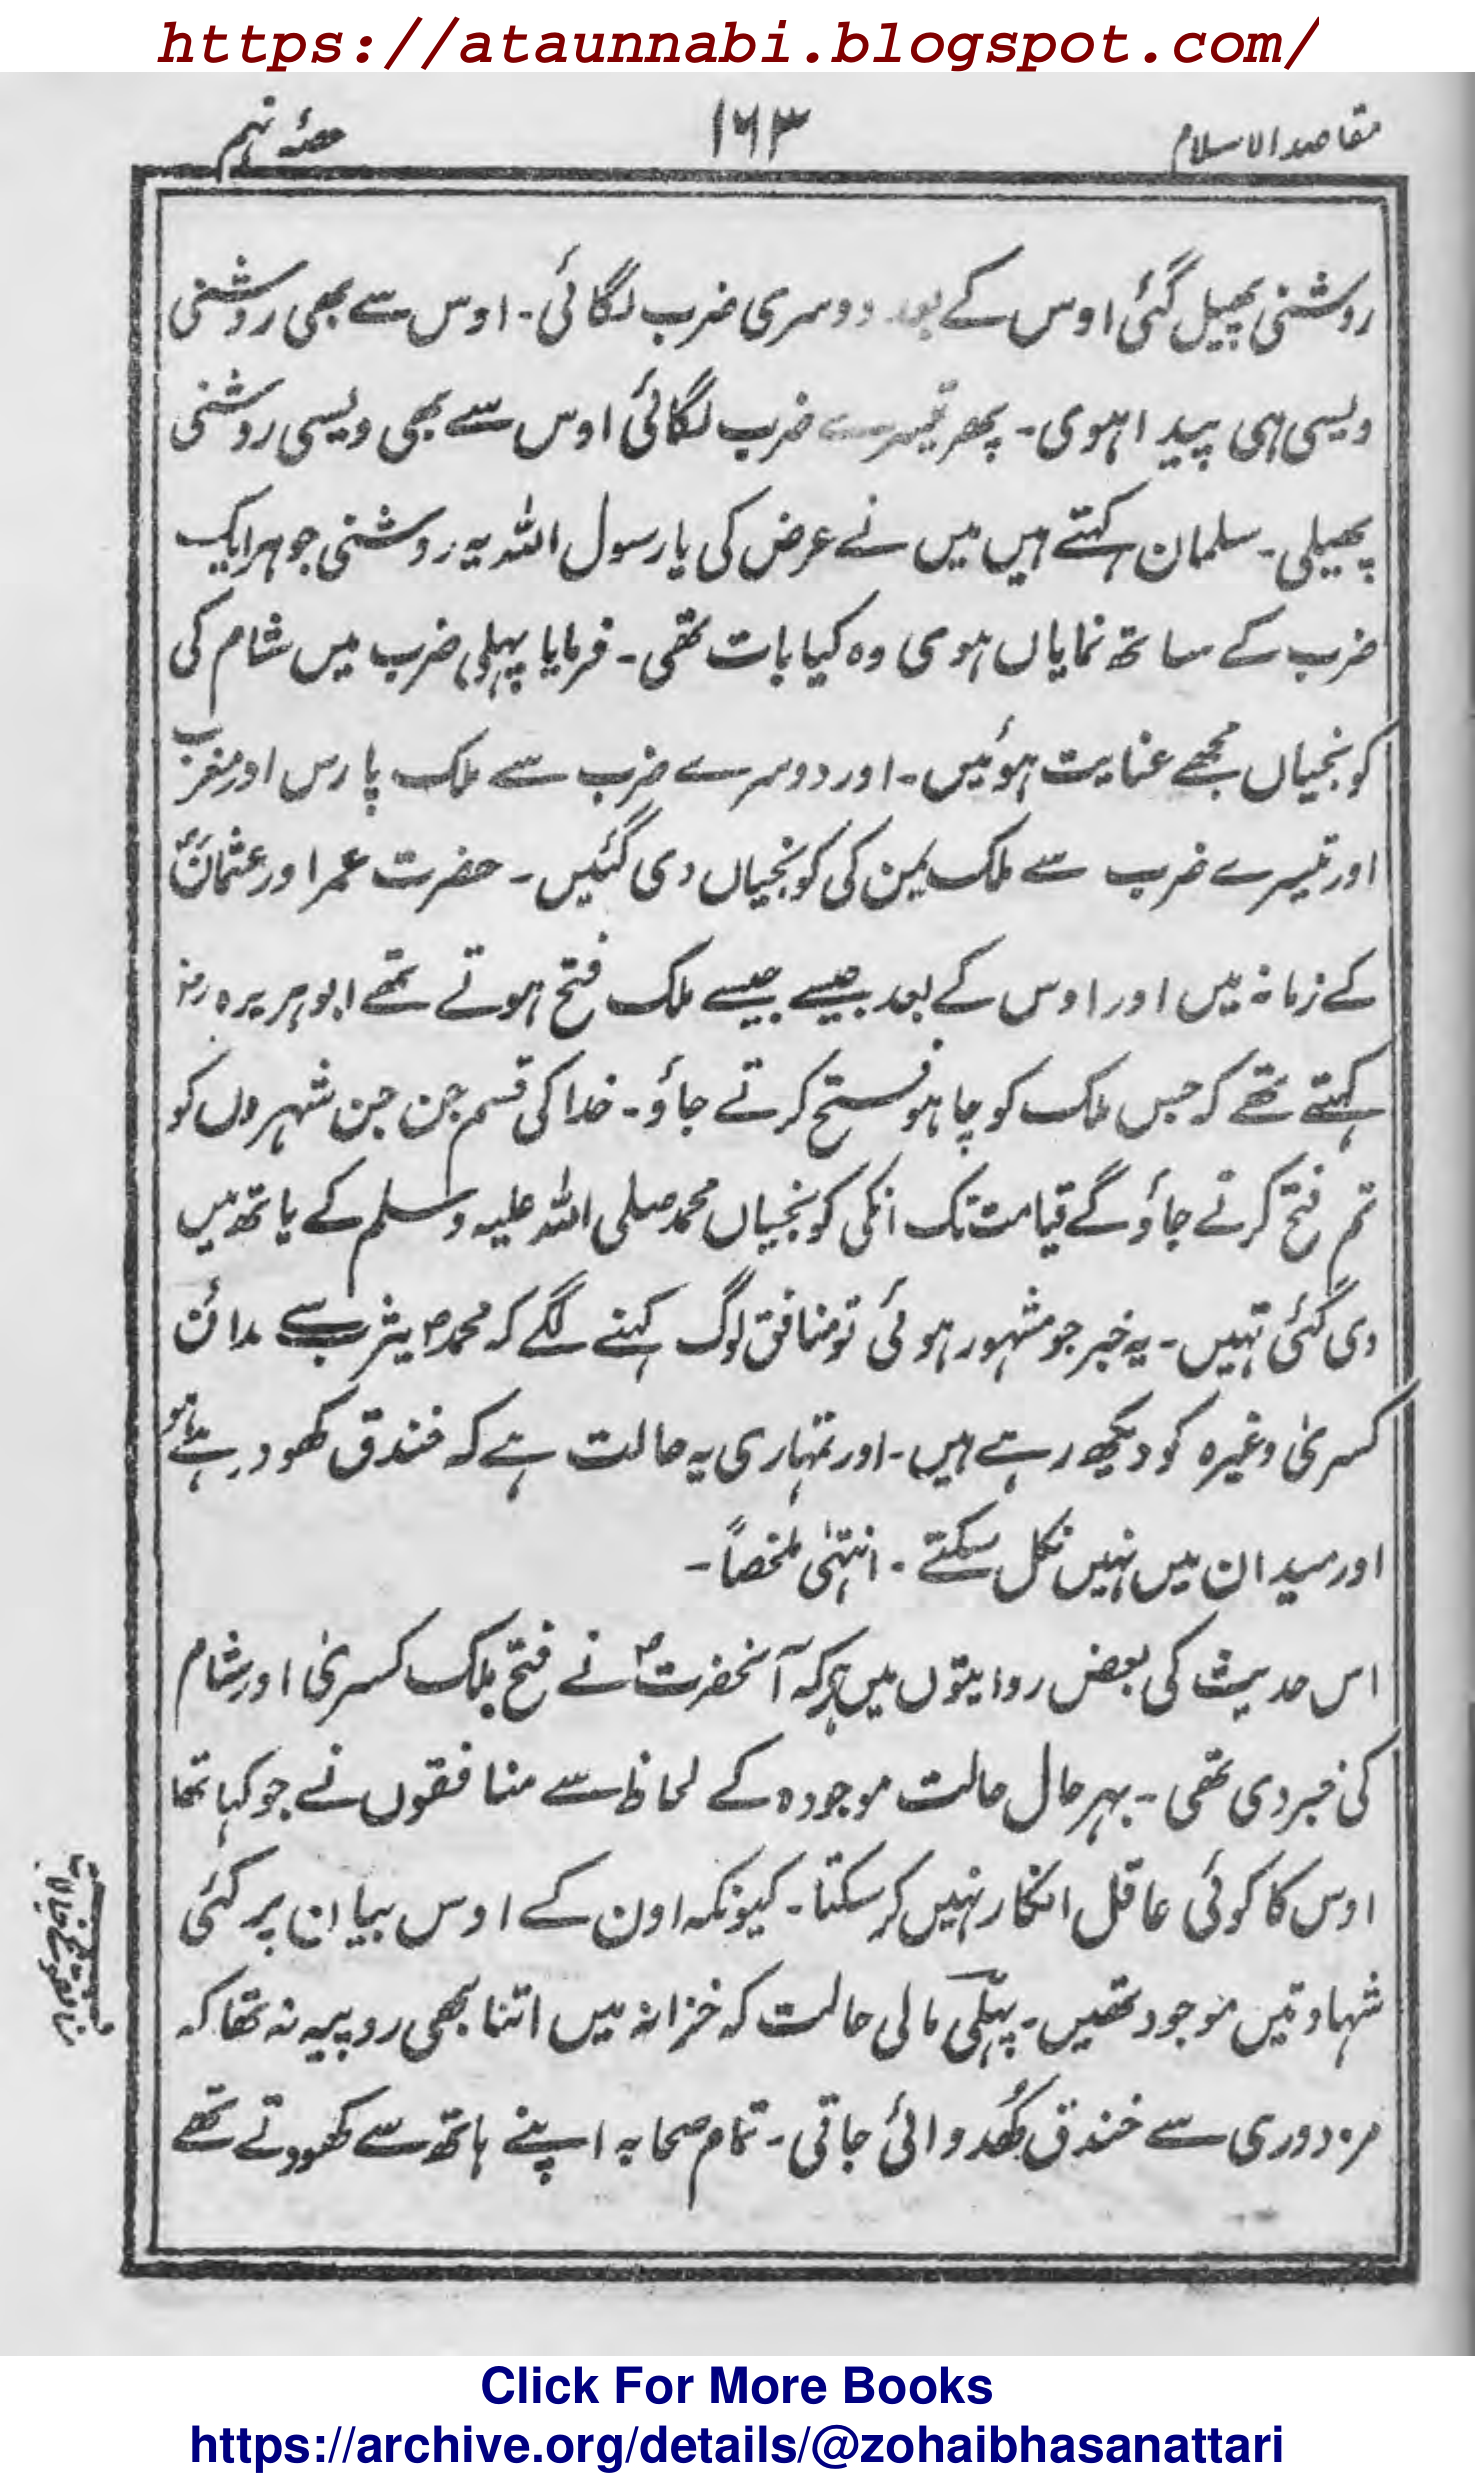 https://ataunnabi.blogspot.com/
مقاصد الاسلام ۱۶۳ حصۂ نہم
روشنی پھیل گئی اوس کے بعد دوسری ضرب لگائی۔ اوس سے بھی روشنی
ویسی ہی پیدا ہوی۔ پھر تیسرے ضرب لگائی اوس سے بھی ویسی روشنی
پھیلی۔ سلمان کہتے ہیں میں نے عرض کی یا رسول اللہ یہ روشنی جو ہر ایک
ضرب کے ساتھ نمایاں ہوی وہ کیا بات تھی۔ فرمایا پہلی ضرب میں شام کی
کونجیاں مجھے عنایت ہوئیں۔ اور دوسرے ضرب سے ملک پارس اور مغرب
اور تیسرے ضرب سے ملک یمن کی کونجیاں دی گئیں۔ حضرت عمر اور عثمانؓ
کے زمانہ میں اور اوس کے بعد جیسے جیسے ملک فتح ہوتے تھے ابو ہریرہ رضؓ
کہتے تھے کہ جس ملک کو چاہو فتح کرتے جاؤ۔ خدا کی قسم جن جن شہروں کو
تم فتح کرتے جاؤ گے قیامت تک انکی کونجیاں محمد صلی اللہ علیہ وسلم کے ہاتھ میں
دی گئی تہیں۔ یہ خبر جو مشہور ہوئی تو منافق لوگ کہنے لگے کہ محمدؐ یثرب سے مدائن
کسریٰ وغیرہ کو دیکھ رہے ہیں۔ اور تمہاری یہ حالت ہے کہ خندق کھود رہے ہو
اور میدان میں نہیں نکل سکتے۔ انتہیٰ ملخصاً۔
اس حدیث کی بعض روایتوں میں ہے کہ آنحضرتؐ نے فتح ملک کسریٰ اور شام
کی خبر دی تھی۔ بہر حال حالت موجودہ کے لحاظ سے منافقوں نے جو کہا تھا
اوس کا کوئی عاقل انکار نہیں کرسکتا۔ کیونکہ اون کے اوس بیان پر کئی
شہادتیں موجود تھیں۔ پہلی مالی حالت کہ خزانہ میں اتنا بھی روپیہ نہ تھا کہ
مزدوری سے خندق کُھدوائی جاتی۔ تمام صحابہ اپنے ہاتھ سے کھودتے تھے
Click For More Books
https://archive.org/details/@zohaibhasanattari